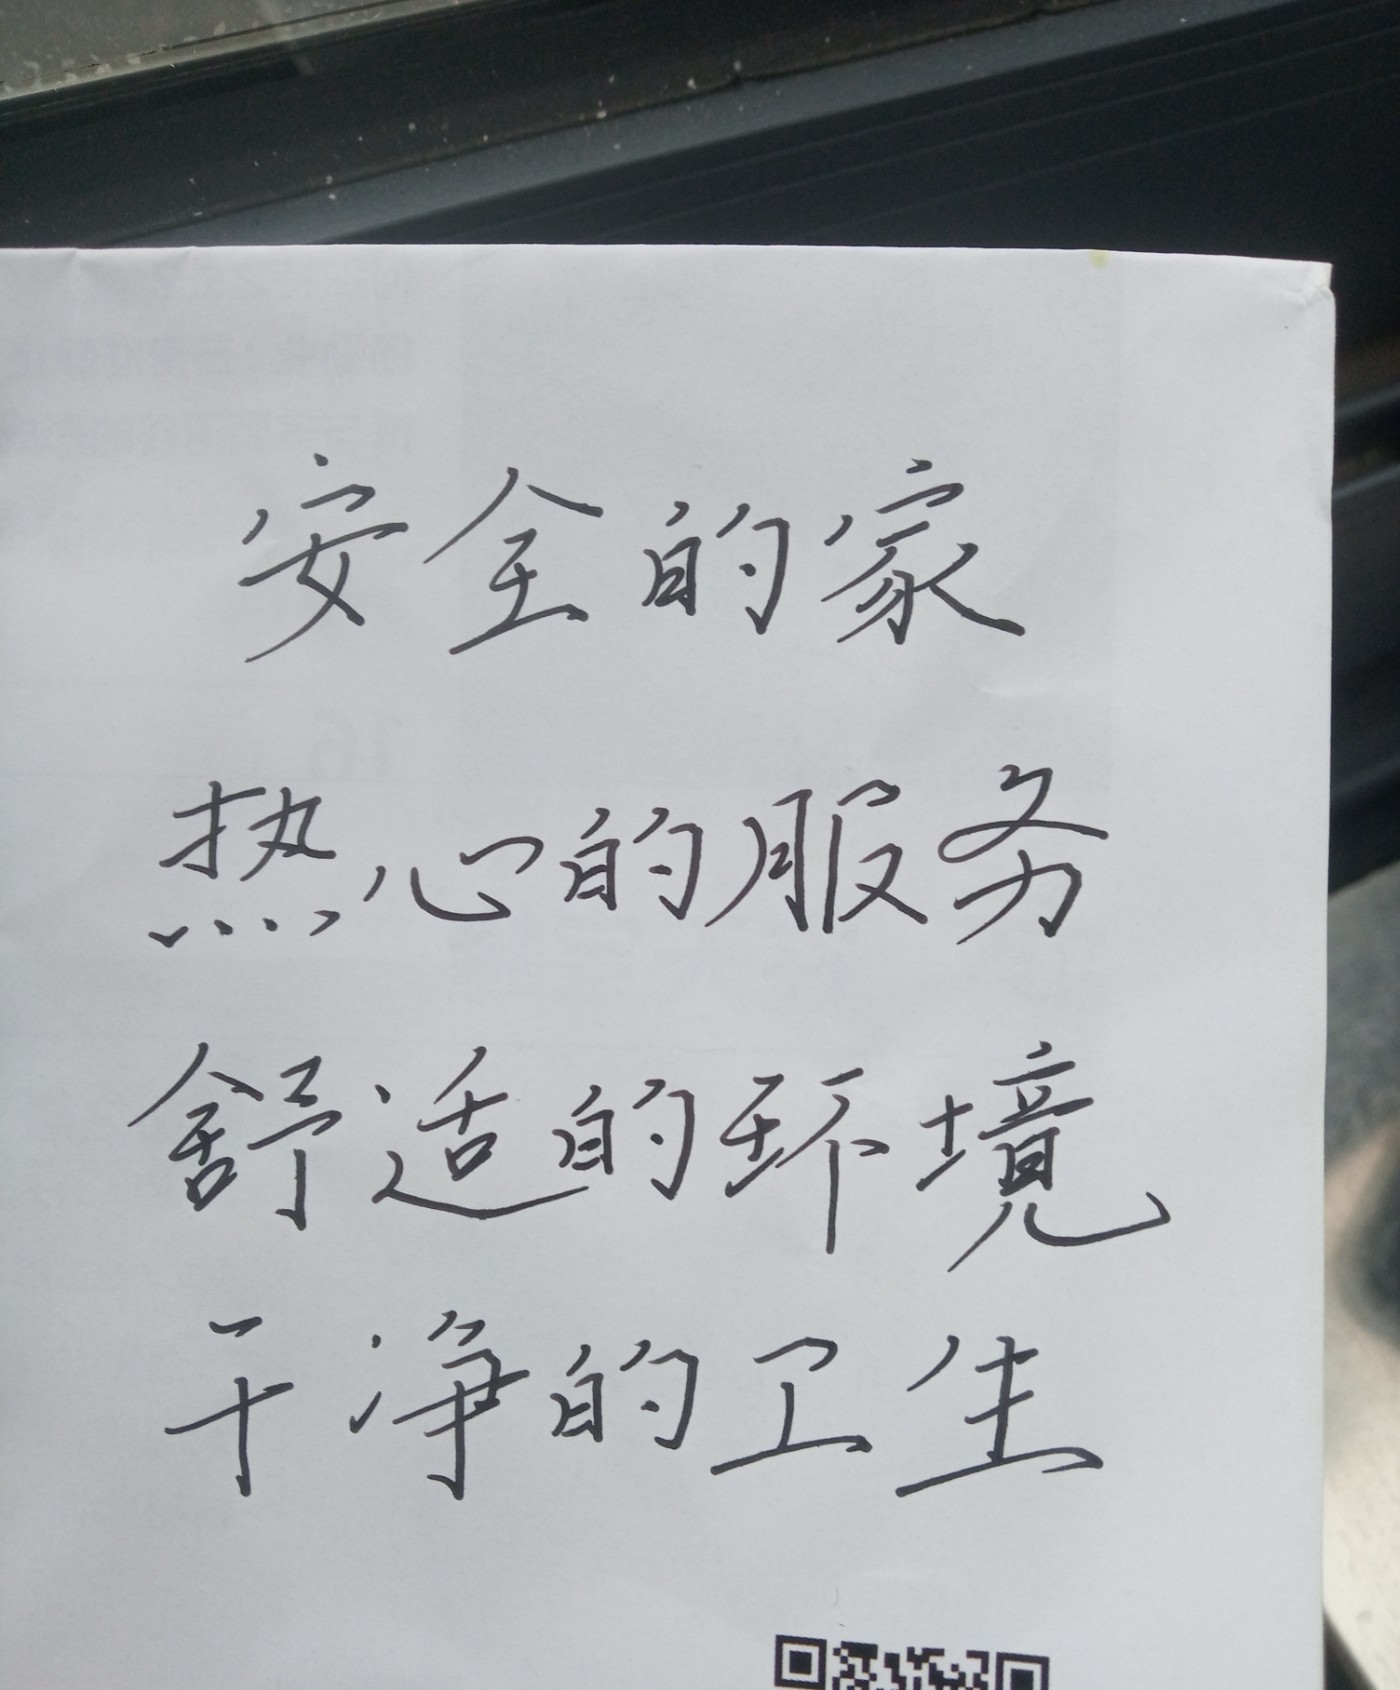 安全的家
热心的服务
舒适的环境
干净的卫生